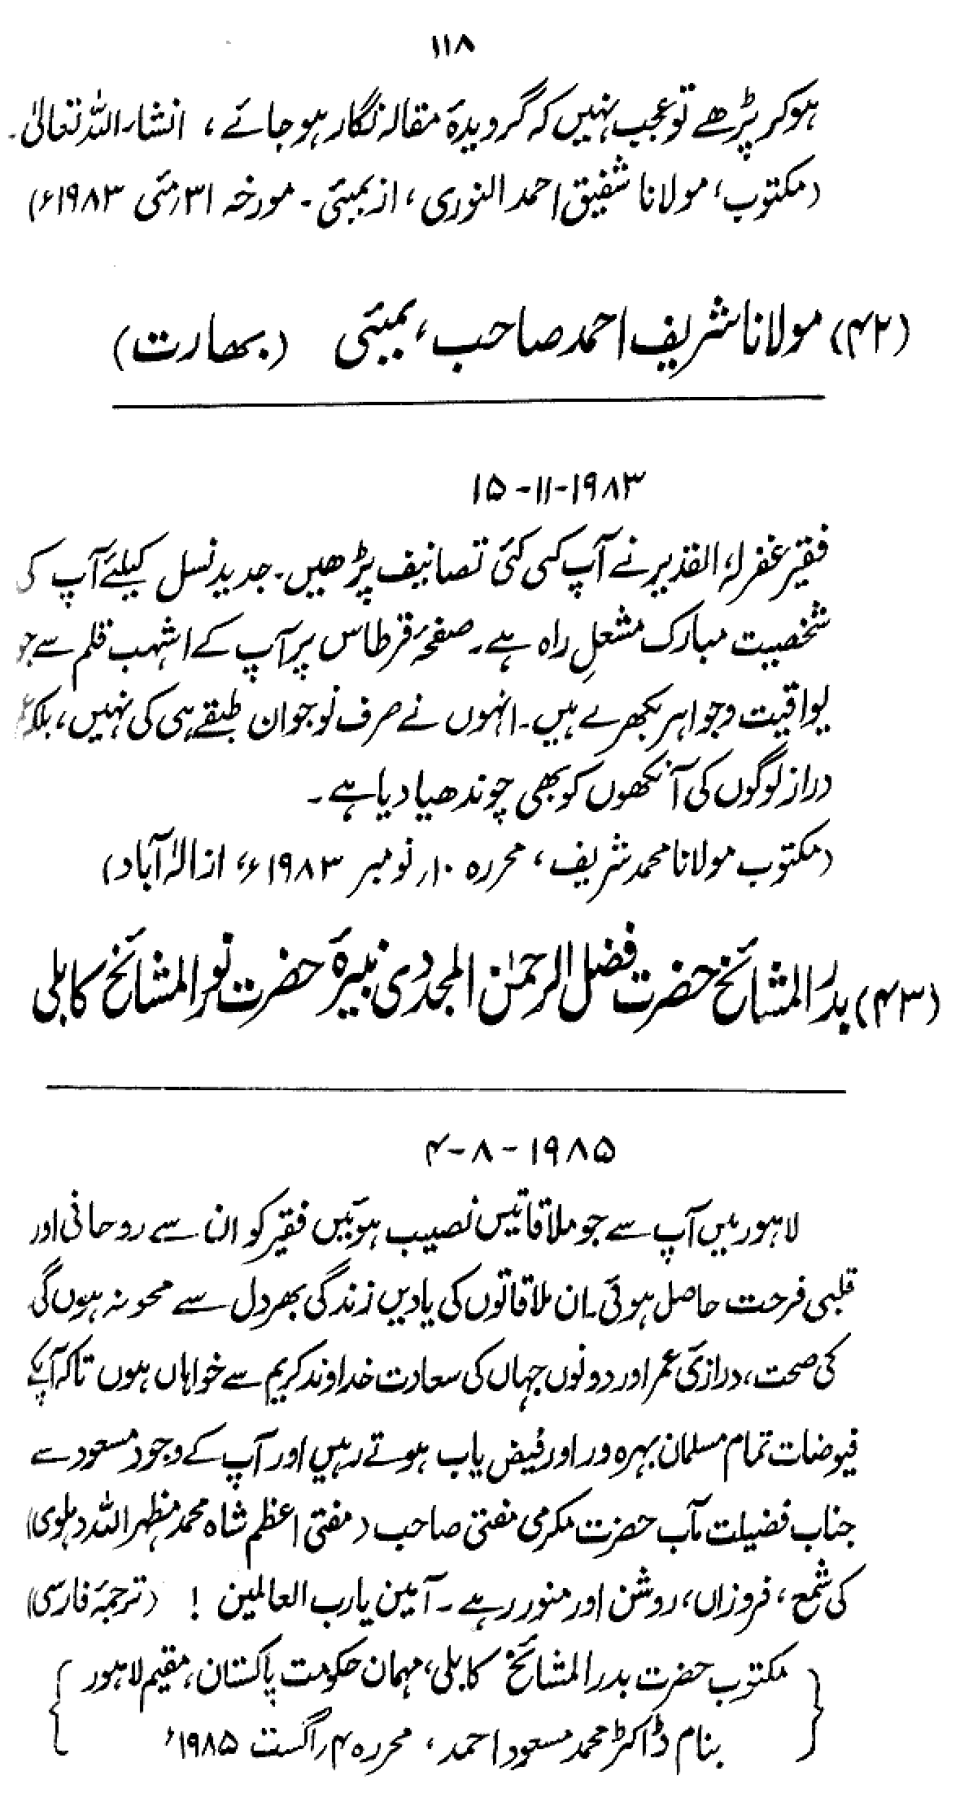 ۱۱۸
ہوکر پڑھے تو عجب نہیں کہ گرویدۂ مقالہ نگار ہو جائے ، انشاء اللہ تعالیٰ۔
(مکتوب، مولانا شفیق احمد النوری، از بمبئی ۔ مورخہ ۳۱؍مئی ۱۹۸۳ء)
(۴۲) مولانا شریف احمد صاحب، بمبئی (بھارت)
۱۵-۱۱-۱۹۸۳
فقیر غفرلہٗ القدیر نے آپ کی کئی تصانیف پڑھیں۔ جدید نسل کیلئے آپ کی
شخصیت مبارک مشعلِ راہ ہے۔ صفحۂ قرطاس پر آپ کے اشہب قلم سے جو
یواقیت و جواہر بکھرے ہیں۔ انہوں نے صرف نوجوان طبقے ہی کی نہیں، بلکہ
دراز لوگوں کی آنکھوں کو بھی چوندھیا دیا ہے۔
(مکتوب مولانا محمد شریف ، محررہ ۱۰؍ نومبر ۱۹۸۳ء، از الٰہ آباد)
(۴۳) بدر المشائخ حضرت فضل الرحمٰن المجددی نبیرۂ حضرت نور المشائخ کابلی
۴-۸-۱۹۸۵
لاہور میں آپ سے جو ملاقاتیں نصیب ہوئیں فقیر کو ان سے روحانی اور
قلبی فرحت حاصل ہوئی۔ ان ملاقاتوں کی یادیں زندگی بھر دل سے محو نہ ہوں گی
کی صحت، درازئ عمر اور دونوں جہاں کی سعادت خداوند کریم سے خواہاں ہوں تاکہ آپکے
فیوضات تمام مسلمان بہرہ ور اور فیض یاب ہوتے رہیں اور آپ کے وجود مسعود سے
جناب فضیلت مآب حضرت مکرمی مفتی صاحب (مفتی اعظم شاہ محمد مظہر اللہ دہلوی)
کی شمع ، فروزاں، روشن اور منور رہے۔ آمین یارب العالمین ! (ترجمۂ فارسی)
{مکتوب حضرت بدر المشائخ کابلی، مہمان حکومت پاکستان، مقیم لاہور
بنام ڈاکٹر محمد مسعود احمد ، محررہ ۴؍ اگست ۱۹۸۵ء}